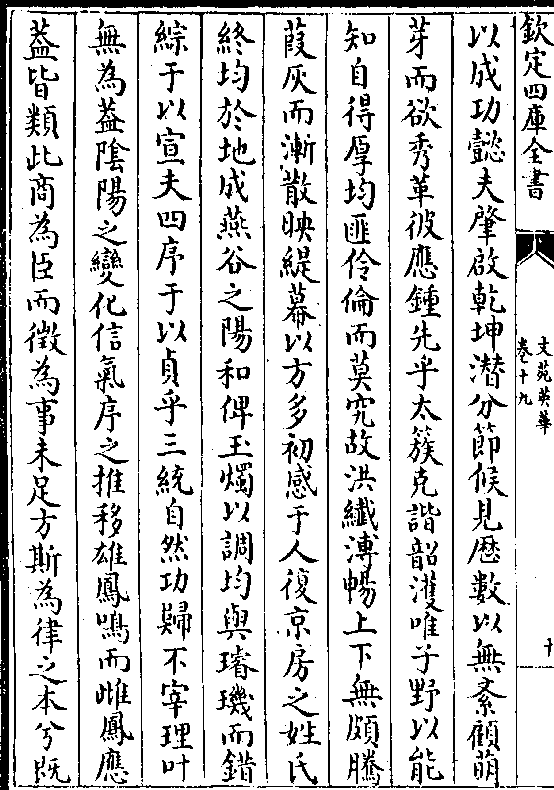 欽定四庫全書
文苑英華
卷十九
十
以成功懿夫肇啟乾坤潛分節候見歷數以無紊顧萌
芽而欲秀革彼應鍾先乎太簇克諧韶濩唯子野以能
知自得厚均匪伶倫而莫究故洪纖溥暢上下無頗騰
葭灰而漸散映緹幕以方多初感于人復京房之姓氏
終均於地成燕谷之陽和俾玉燭以調均與璿璣而錯
綜于以宣夫四序于以貞乎三統自然功歸不宰理叶
無為葢隂陽之變化信氣序之推移雄鳳鳴而雌鳳應
葢皆類此商為臣而徵為事未足方斯為律之本兮既